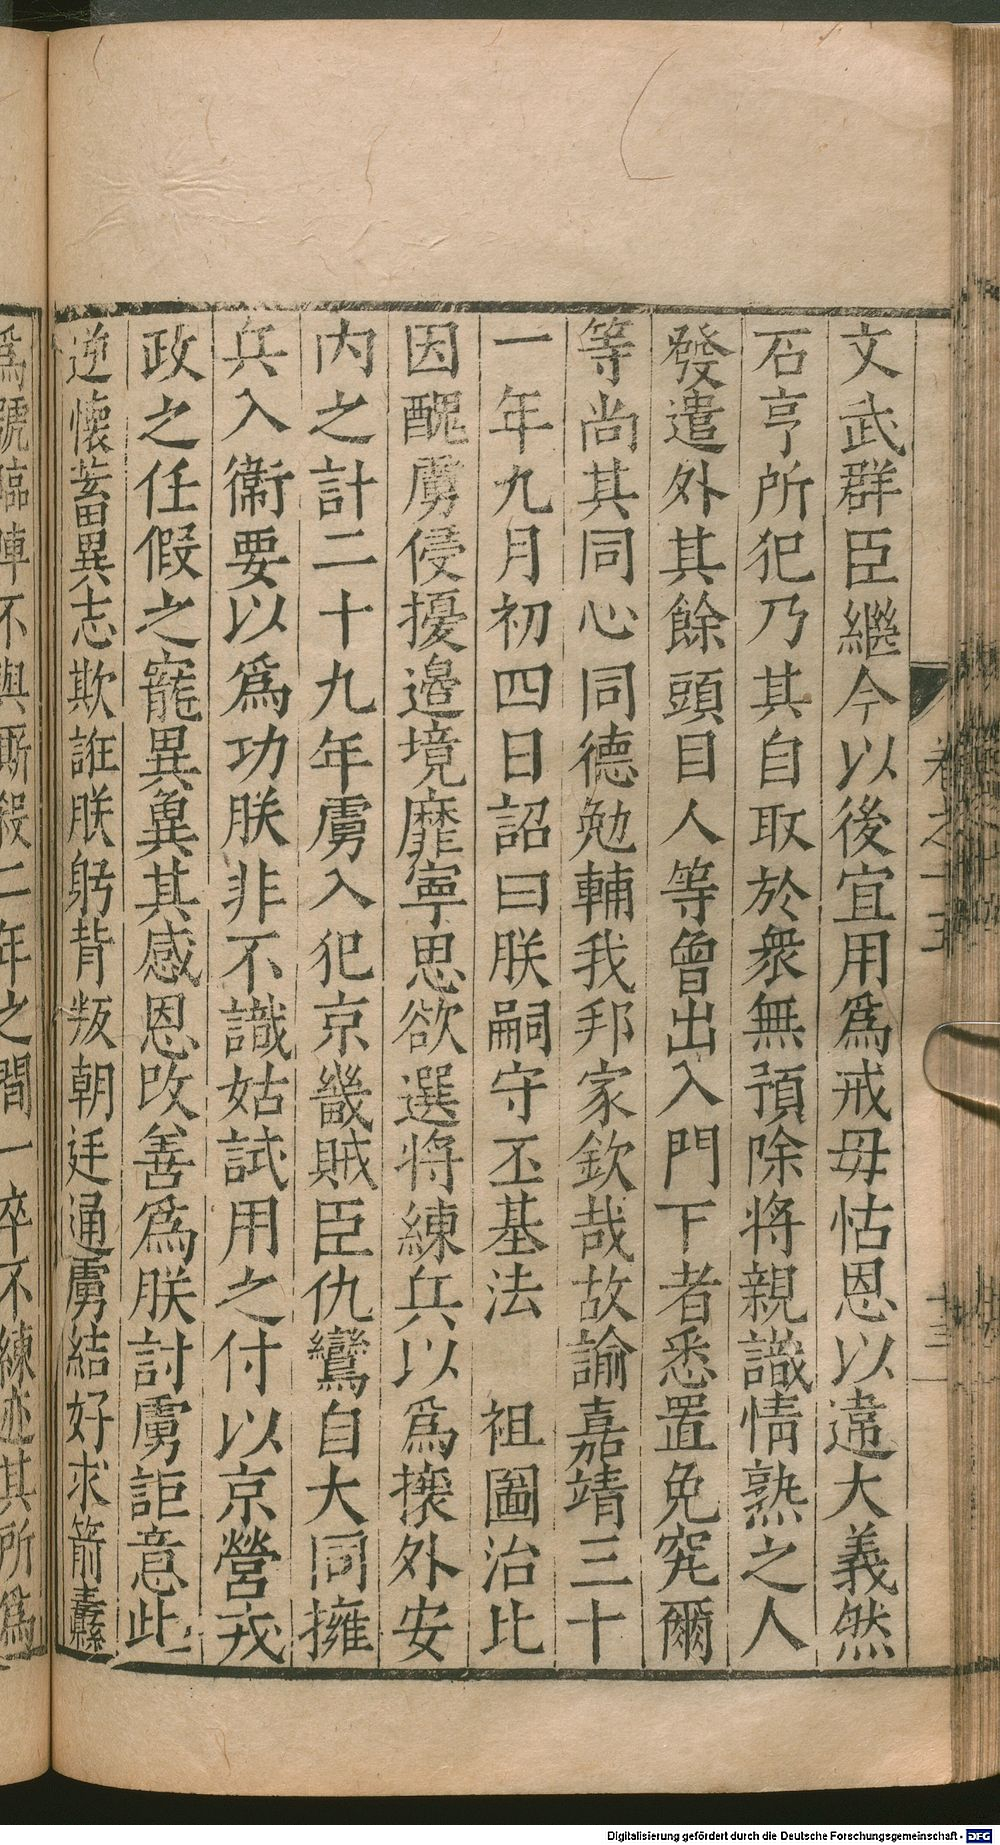 文武群臣繼今以後宜用爲戒毋怙恩以違大義然
石亨所犯乃其自取於衆無預除將親識情熟之人
發遣外其餘頭目人等曾出入門下者悉置免究爾
等尚其同心同德勉輔我邦家欽哉故諭嘉靖三十
一年九月初四日詔曰朕嗣守丕基法　祖圖治比
因醜虜侵擾邊境靡寧思欲選將練兵以爲攘外安
内之計二十九年虜入犯京畿賊臣仇鸞自大同擁
兵入衛要以爲功朕非不識姑試用之付以京營戎
政之任假之寵異冀其感恩改善爲朕討虜詎意此
逆懷蓄異志欺誑朕躬背叛朝廷通虜結好求箭纛
爲號臨陣不與厮殺二年之間一卒不練迹其所爲
卷之十三
Digitalisierung gefördert durch die Deutsche Forschungsgemeinschaft - DFG